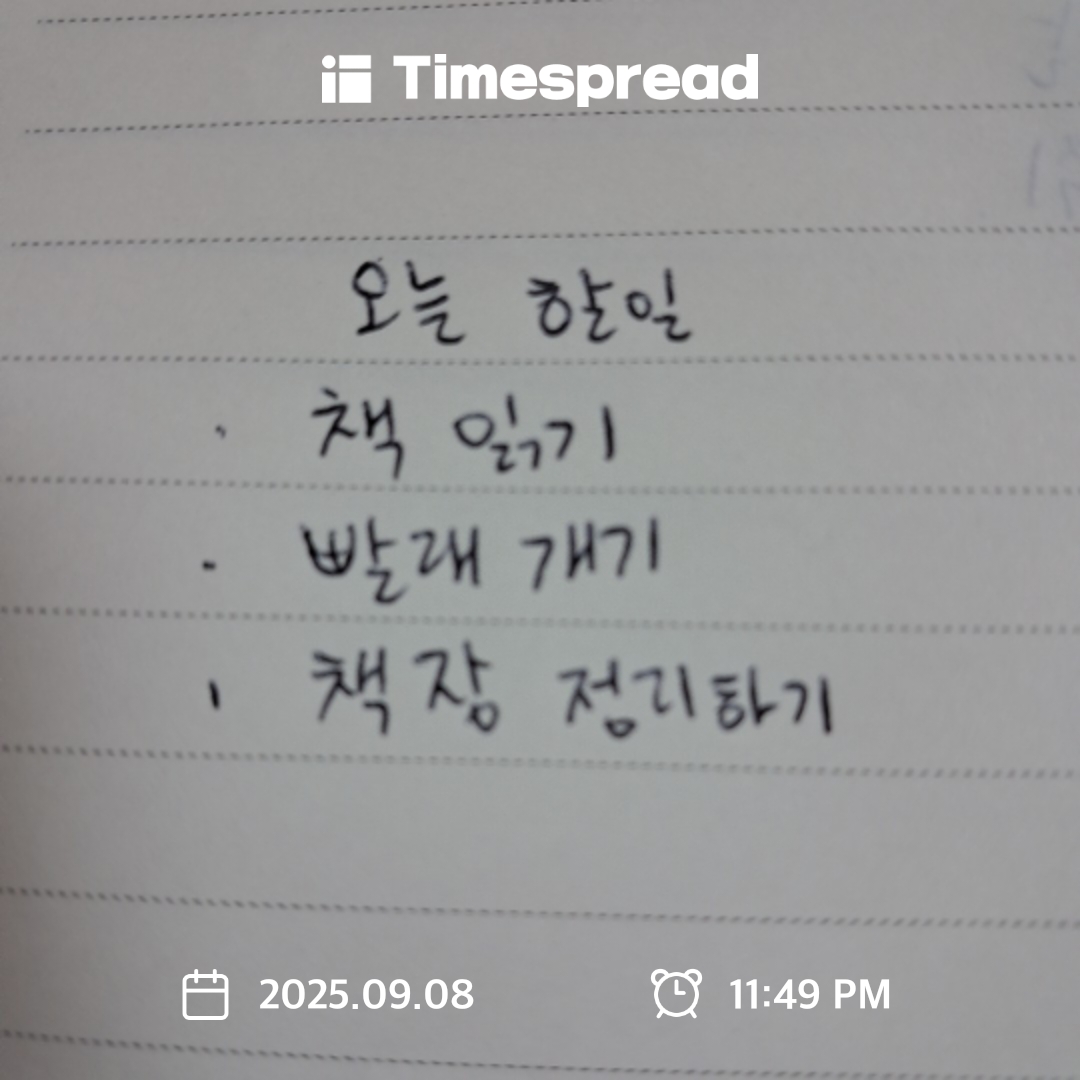 Timespread
오늘 할일
· 책 읽기
· 빨래 개기
· 책장 정리하기
2025.09.08 11:49 PM